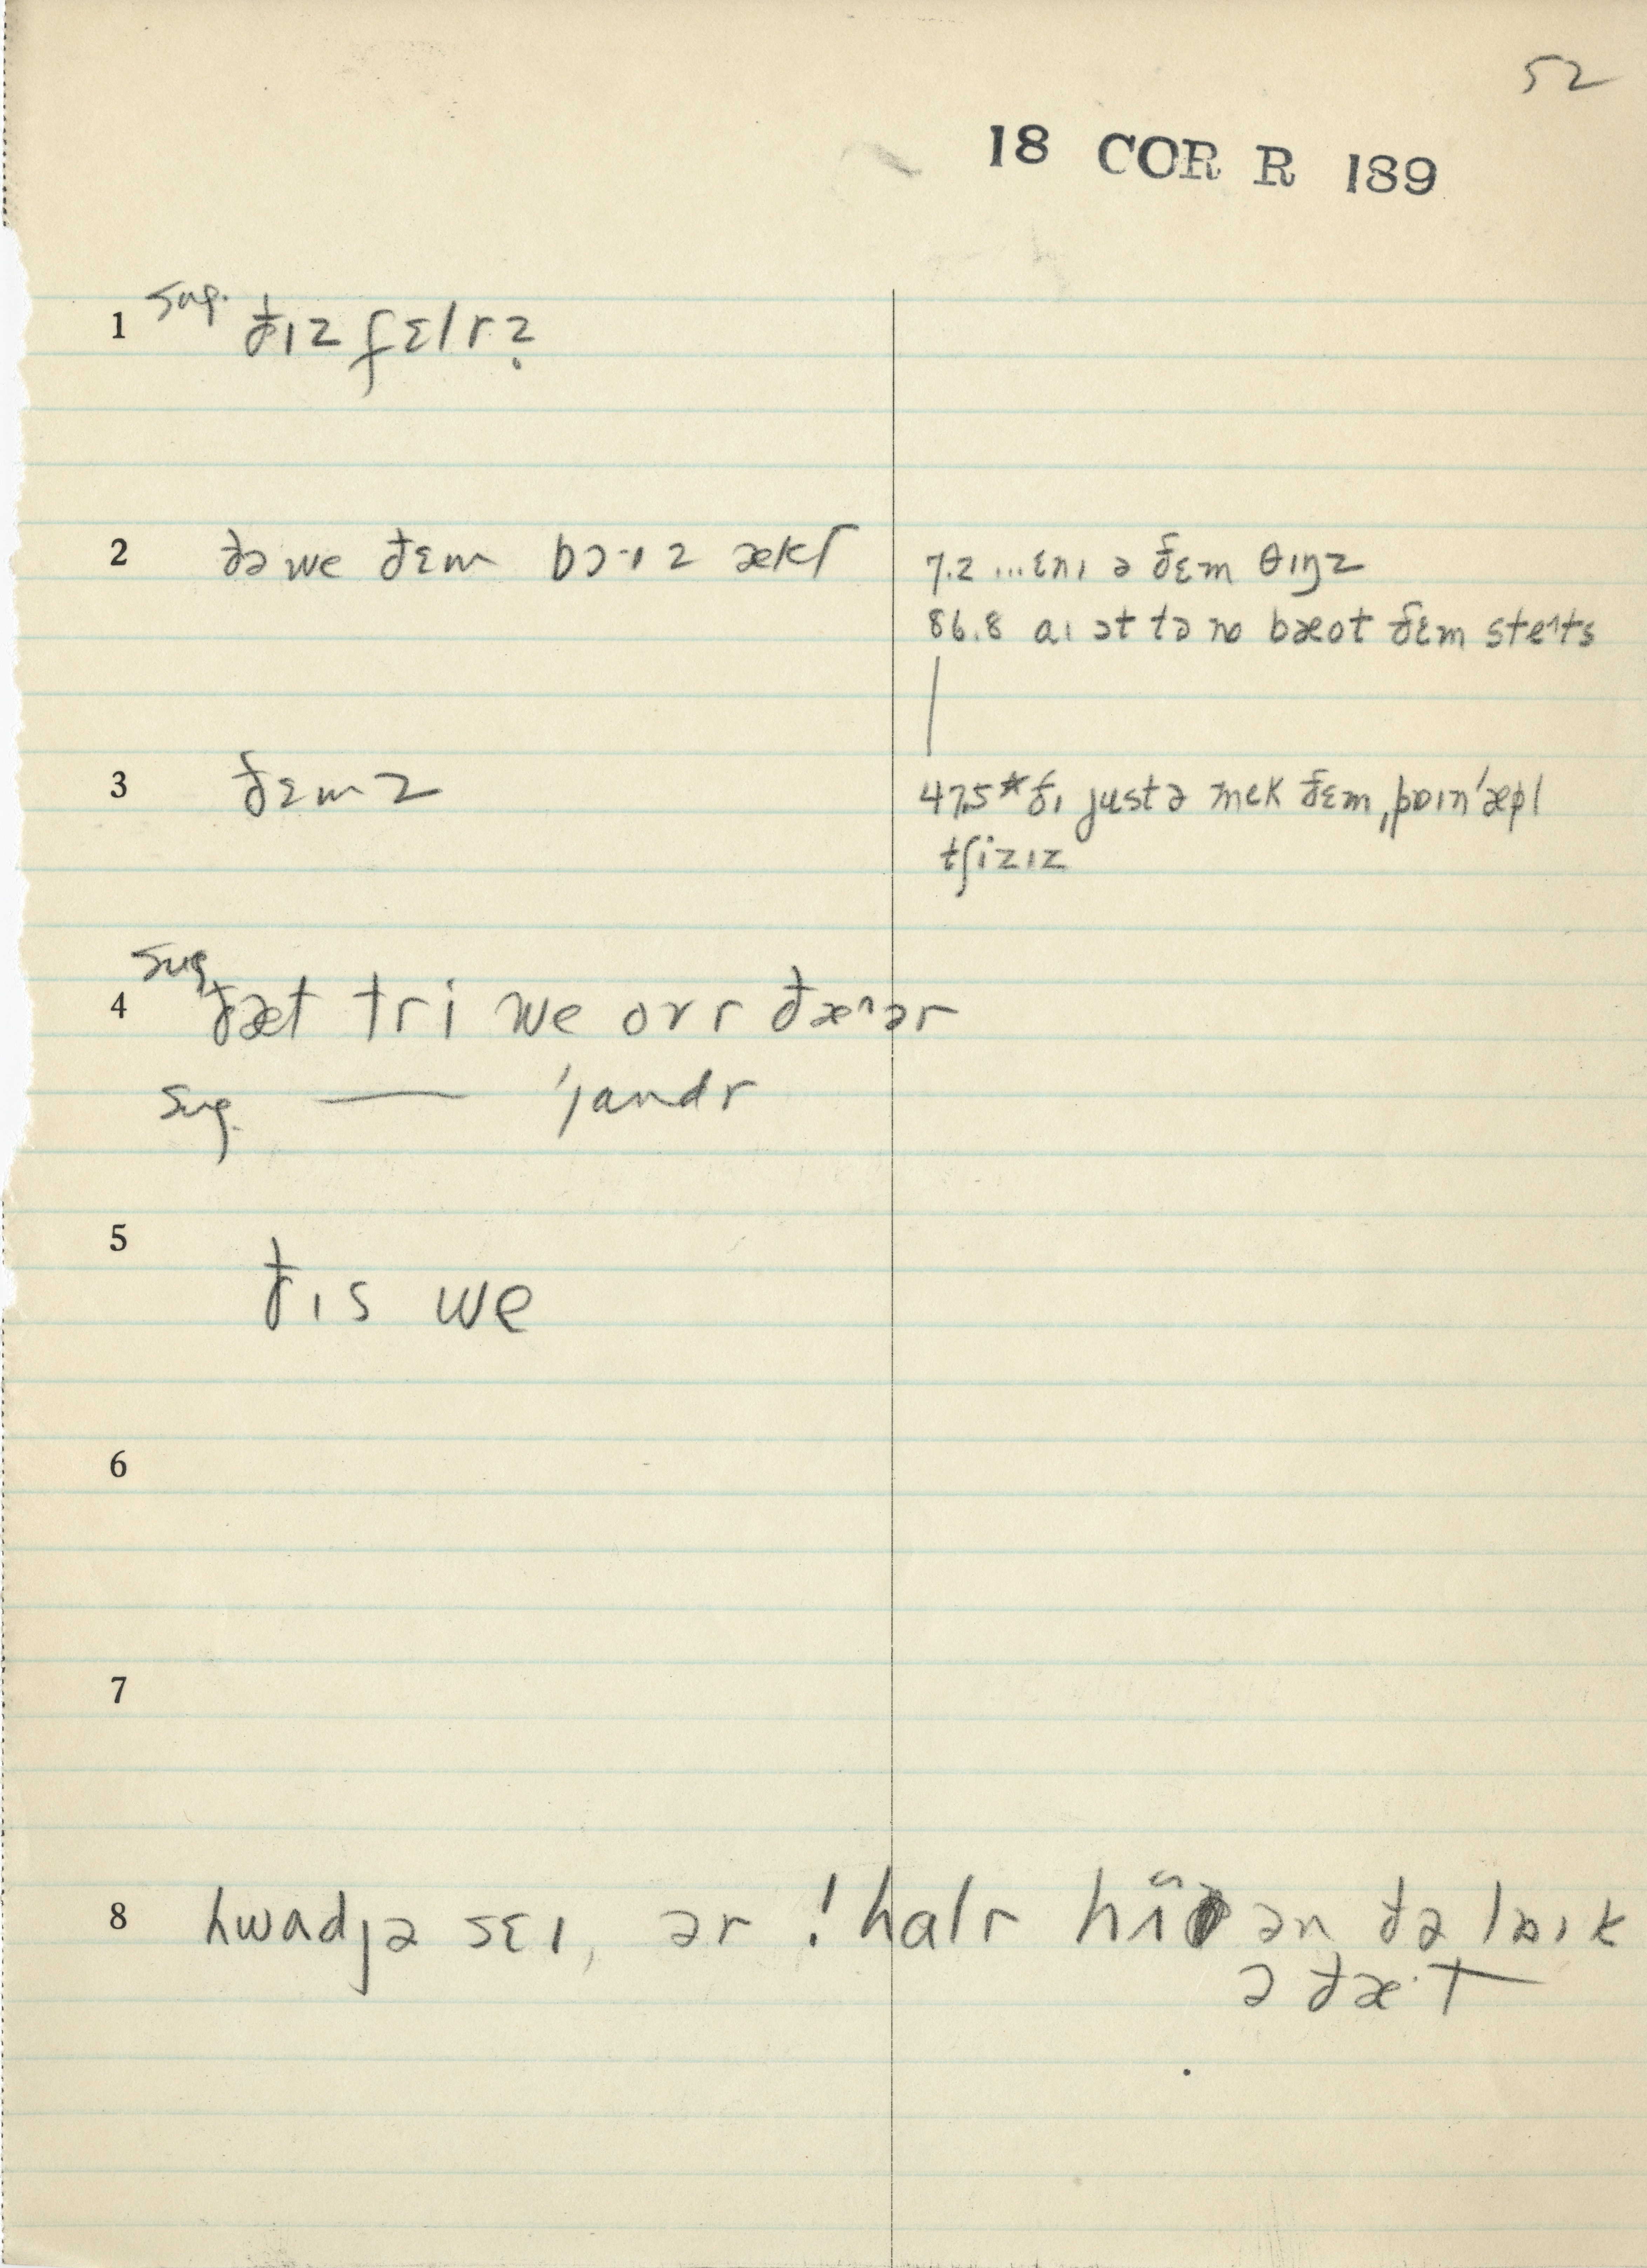 52
18 COR R 189
1 sug. ðɪz fɛlrẓ
2 ðə we ðɛm bɔ·ɪz ækt 7.2 ...ɛnɪ ə ðɛm θɪŋz
86.8 aɪ ɔt tə no bæot ðɛm ste^ts
3 ðɛmz 47.5* ðɪ justə mek ðɛm ˌpɒɪn'æpl
tʃizɪz
4 sug. ðæt tri we ovr ðæ^ər
sug. — 'jandr
5 ðɪs we
6
7
8 hwadjə sɛɪ, ər ! halr hi ən ðə lɒɪk
ə ðæ·t